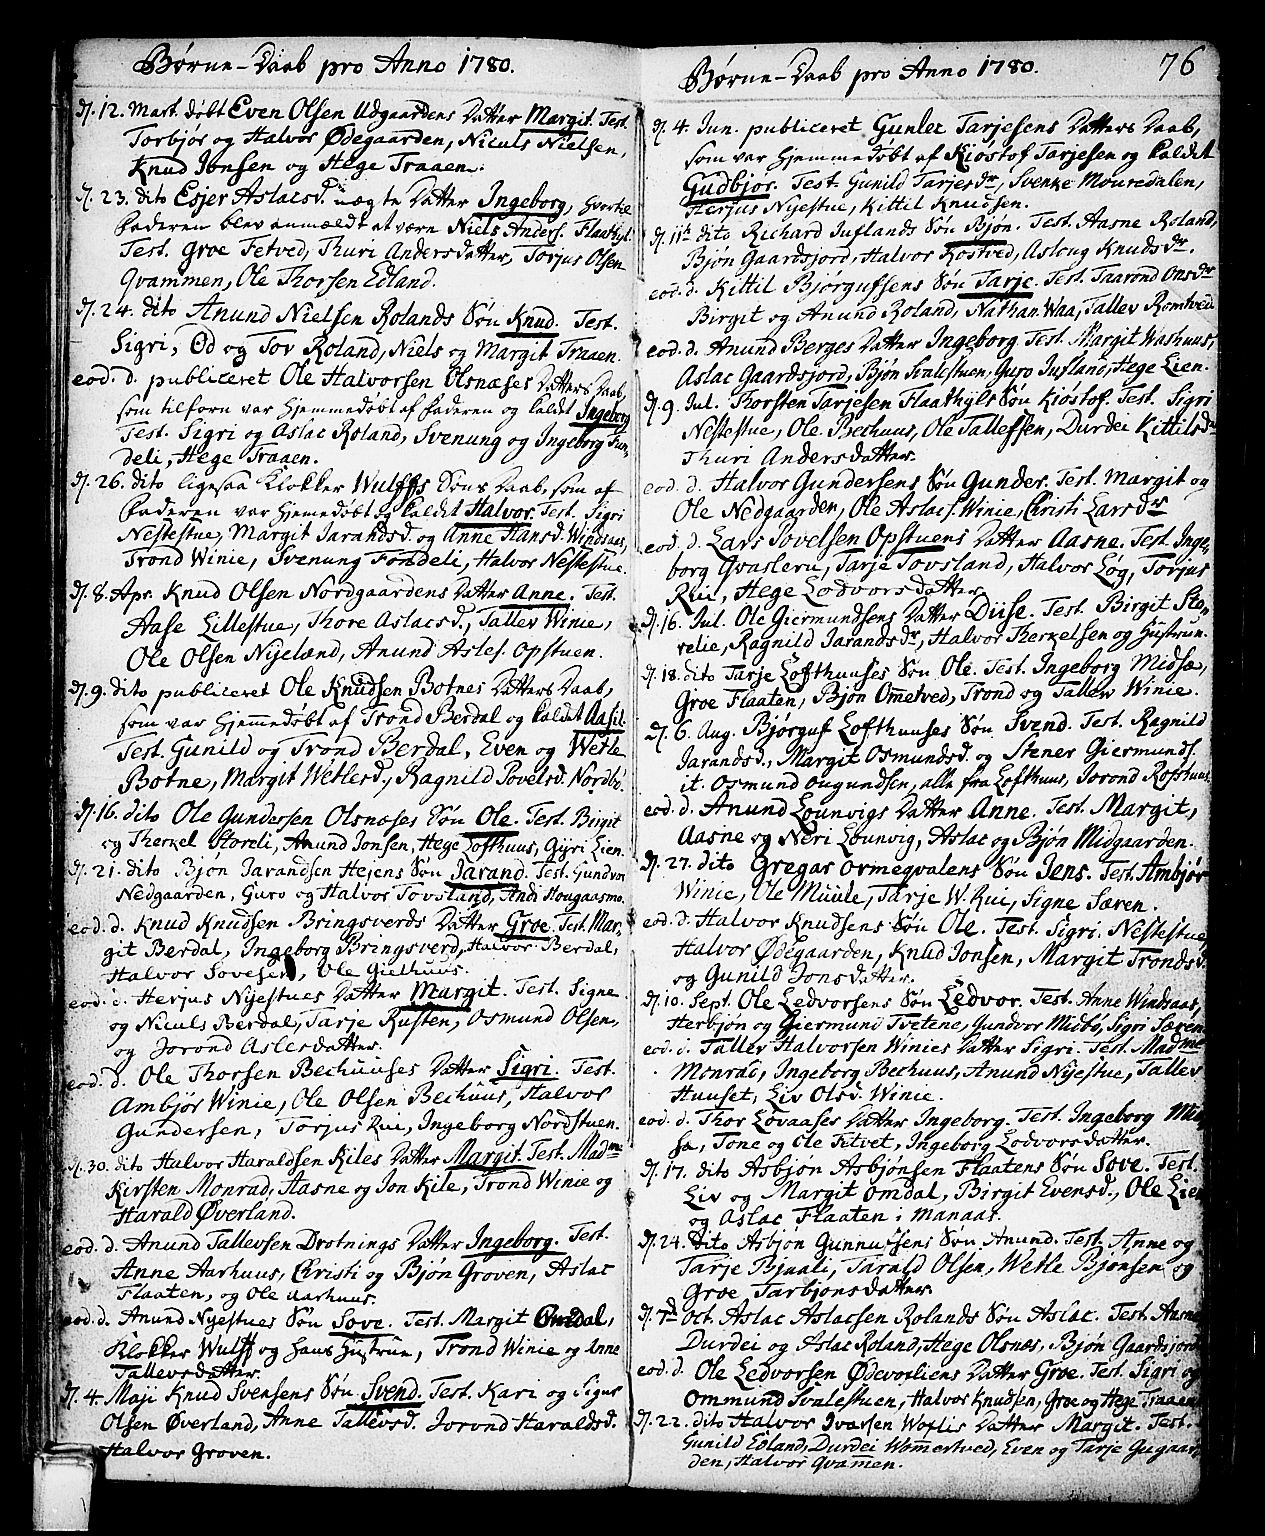 Børne-Daab pro Anno 1780.
d. 12. Mart. døbt Even Olsen Udgaardens Datter Margit. Test.
Torbjør og Halvor Ødegaarden, Niculs Nielsen,
Knud Jonsen og Hege Traaen.
d. 23. dito Esjer Aslacsd. uægte Datter Ingeborg, hvortil
Faderen blev anmældt at være Niels Anders. Flaathyl.
Test. Groe Fetved, Thuri Andersdatter, Torjus Olsen
Qvammen, Ole Thorsen Edland.
d. 24. dito Anund Nielsen Rolands Søn Knud. Test.
Sigri, Od og Tov Roland, Niels og Margit Traaen.
eod. d. publiceret Ole Halvorsen Olsnæses Datters Daab,
som tilforn var hjemmedøbt af Faderen og kaldt Ingeborg
Test. Sigri og Aslac Roland, Svenung og Ingeborg Fun-
deli, Hege Traaen.
d. 26. dito ligesaa Klokker Wulffs Søns Daab, som af
Faderen var hjemmedøbt og kaldet Halvor. Test. Sigri
Nestestue, Margit Jarandsd. og Anne Hansd. Windsaas,
Trond Winie, Svenung Fondeli, Halvor Nestestue.
d. 8. Apr. Knud Olsen Nordgaardens Datter Anne. Test.
Aase Lillestue, Thore Aslacsd., Tallev Winie,
Ole Olsen Nijeland, Anund Asles. Opstuen.
d. 9. dito publiceret Ole Knudsen Botnes Datters Daab,
som var hjemmedøbt af Trond Berdal og kaldet Aasil.
Test. Gunild og Trond Berdal, Even og Wetle
Botne, Margit Wetlesd., Ragnild Povelsd. Nordbø.
d. 16. dito Ole Gundersen Olsnæses Søn Ole. Test. Birgit
og Therkel Storeli, Anund Jonsen, Hege Lofthuus, Gyri Lien.
d. 21. dito Bjøn Jarandsen Hejens Søn Jarand. Test. Gundvor
Nedgaarden, Guro og Halvor Tovsland, Andi Hougaasmo.
eod. d. Knud Knudsen Bringsverds Datter Groe. Test. Mar-
git Berdal, Ingeborg Bringsverd, Halvor Berdal,
Halvor Sovesen, Ole Gielhuus.
eod. d. Herjus Nyestues Datter Margit. Test. Signe
og Niculs Berdal, Tarje Rusten, Osmund Olsen,
og Jorond Aslesdatter.
eod. d. Ole Thorsen Bechuuses Datter Sigri. Test.
Ambjør Winie, Ole Olsen Bechuus, Halvor
Gundersen, Torjus Rui, Ingeborg Nordstuen.
d. 30. dito Halvor Haraldsen Kiles Datter Margit. Test. Madme
Kirsten Monrad, Aasne og Jon Kile, Trond Winie og
Harald Øverland.
eod. d. Anund Tallevsen Drotnings Datter Ingeborg. Test.
Anne Aarhuus, Christi og Bjøn Groven, Aslac
Flaaten, og Ole Aarhuus.
eod. d. Anund Nyestues Søn Sove. Test. Margit Omdal,
Klokker Wulff og hans Hustrue, Trond Winie og Anne
Tallevsdatter.
d. 4. Maji Knud Svensens Søn Svend. Test. Kari og Sigur
Olsen Øverland, Anne Tallevsd. Jorond Haraldsd.
Halvor Groven.
Børne-Daab pro Anno 1780.
76
d. 4. Jun. publiceret Gunler Tarjesens Datters Daab,
som var hjemmedøbt af Kiostof Tarjesen og kaldet
Gudbjør. Test. Gunild Tarjesdr, Svenke Mouredalen,
Herjus Nyestue, Kittil Knudsen.
d. 11te dito Richard Juflands Søn Bjøn. Test. Aasne Roland,
Bjøn Gaardsjord, Halvor Rostved, Aslong Knudsdr.
eod. d. Kittil Bjørgufsens Søn Tarje. Test. Taarond Onsdr
Birgit og Anund Roland, Nathan Waa, Tallev Romtved
eod. d. Anund Berges Datter Ingeborg Test. Margit Washuus,
Aslac Gaardsjord, Bjøn Svalestuen, Guro Jufland, Hege Lien.
d. 9. Jul. Thorsten Tarjesen Flaathyls Søn Kiostof. Test. Sigri
Nestestue, Ole Bechuus, Ole Tallefsen, Durdei Kittilsdr
Thuri Andersdatter.
eod. d. Halvor Gundersens Søn Gunder. Test. Margit og
Ole Nedgaarden, Ole Aslacs. Winie, Christi Larsdr
eod. d. Lars Povelsen Opstuens Datter Aasne. Test. Inge-
borg Qvasleru, Tarje Tovsland, Halvor Løg, Torjus
Rui, Hege Lodvorsdatter
d. 16. Jul. Ole Giermundsens Datter Diise. Test. Birgit Sto-
relie, Ragnild Jarandsdr, Halvor Therkelsen og Hustrun.
d. 18. dito Tarje Lofthuuses Søn Ole. Test. Ingeborg Midsæ,
Groe Flaaten, Bjøn Ometved, Trond og Tallev Winie.
d. 6. Aug. Bjørguf Lofthuuses Søn Svend. Test. Ragnild
Jarandsd., Margit Osmundsd. og Stener Giermunds.
it. Osmund Ougundsen, alle fra Lofthuus, Jorond Rosthuus.
eod. d. Anund Lounvigs Datter Anne. Test. Margit,
Aasne og Neri Lounvig, Aslac og Bjøn Midgaarden.
d. 27. dito Gregar Ormegvalens Søn Jens. Test. Ambjør
Winie, Ole Müüle, Tarje W. Rui, Signe Særen.
eod. d. Halvor Knudsens Søn Ole. Test. Sigri Nestestue,
Halvor Ødegaarden, Knud Jonsen, Margit Trondsd.
og Gunild Jonsdatter.
d. 10. Sept. Ole Ledvorsens Søn Ledvor. Test. Anne Windsaas,
Herbjøn og Giermund Tvetene, Gundvor Midbø, Sigri Særen
eod. d. Tallev Halvorsen Winies Datter Sigri. Test. Madme
Monrad, Ingeborg Bechuus, Anund Nyestue, Tallev
Huuset, Liv Olsd. Winie.
eod. d. Thor Lovaases Datter Ingeborg. Test. Ingeborg Mid-
sæ, Tone og Ole Fetvet, Ingeborg Lodvorsdatter.
d. 17. dito Asbjøn Asbjønsen Flaatens Søn Sove. Test.
Liv og Margit Omdal, Birgit Evensd., Ole Lien
og Aslac Flaaten i Manaas.
d. 24. dito Asbjøn Gunnufsens Søn Anund. Test. Anne og
Tarje Bjaali, Tarald Olsen, Wetle Bjønsen og
Groe, Tarbjønsdatter.
d. 7d Oct. Aslac Aslacsen Rolands Søn Aslac. Test. Aasne
Durdei og Aslac Roland, Hege Olsnæs, Bjøn Gaardsjord
eod. d. Ole Ledvorsen Ødevorliens Datter Groe. Test. Sigri og
Ommund Svalestuen, Halvor Knudsen, Groe og Hege Traaen
d. 22. dito Halvor Ivarsen Woxlis Datter Margit. Test.
Gunild Edland, Durdei Womestved, Even og Tarje Gugaar-
den, Halvor Qvamen.